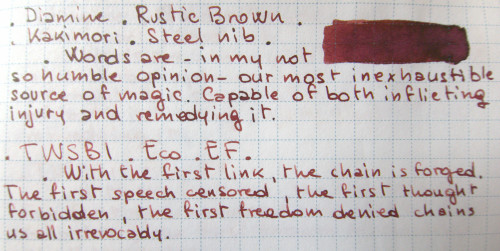 . Diamine . Rustic Brown .
. Kakimori . Steel nib .
. Words are - in my not
so humble opinion - our most inexhaustible
source of magic. Capable of both inflicting
injury and remedying it.
. TWSBI . Eco . EF .
. With the first link, the chain is forged.
The first speech censored, the first thought
forbidden, the first freedom denied chains
us all irrevocably.